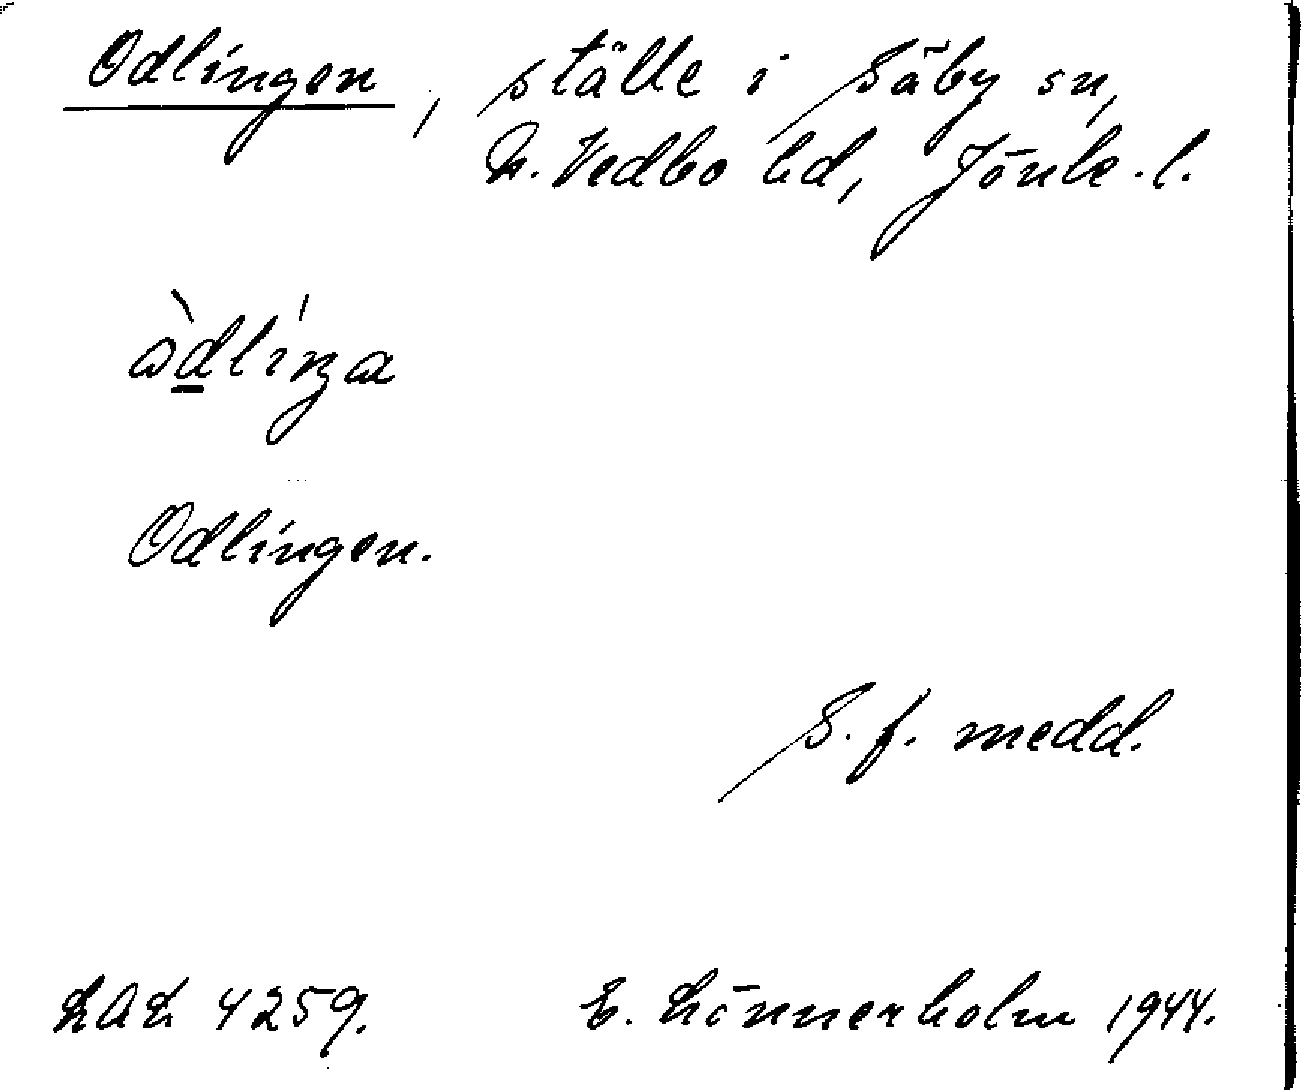 Odlingen, ställe i Säby sn,
N. Vedbo hd, Jönk. l.
òdlíŋa
Odlingen.
S. f. medd.
LAL 4259.
E. Lönnerholm 1944.